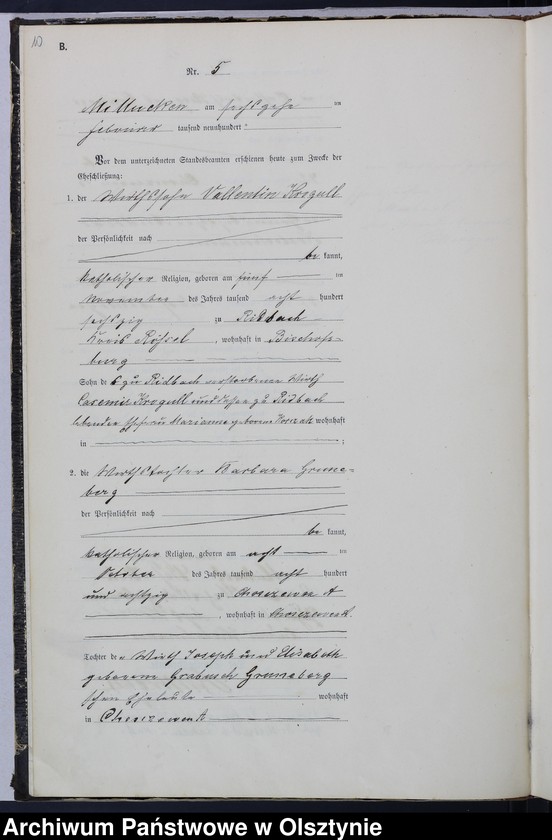 B.
Nr. 5
Millucken am sechszehn ten
Februar tausend neunhundert
Vor dem unterzeichneten Standesbeamten erschienen heute zum Zwecke der
Eheschließung:
1. der Wirthssohn Vallentin Krogull
der Persönlichkeit nach
be kannt,
katholischer Religion, geboren am fünf ten
November des Jahres tausend acht hundert
sechszig zu Ridbach
Kreis Rössel, wohnhaft in Bischofs-
burg
Sohn des zu Ridbach verstorbenen Wirth
Casemir Krogull und dessen zu Ridbach
lebenden Ehefrau Marianna geborene wohnhaft
in ;
2. die Wirthstochter Barbara Grune-
berg
der Persönlichkeit nach
be kannt,
katholischer Religion, geboren am acht ten
October des Jahres tausend acht hundert
und achtzig zu A
, wohnhaft in
Tochter der Wirth Joseph und Elisabeth
geborene Gruneberg
schen Eheleute wohnhaft
in
Archiwum Państwowe w Olsztynie